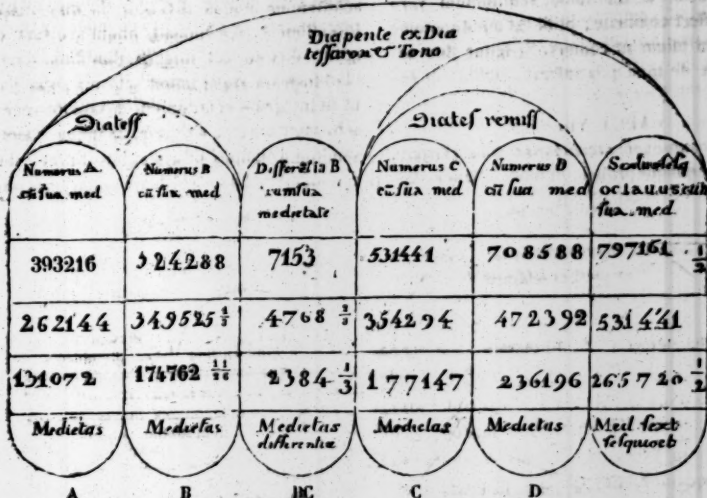 Diapente ex Dia
tessaron & Tono
Diatess
Diates remiss
Numerus A.
cũ sua med
Numerus B
cũ sua med
Differẽtia B
cum sua
medietate
Numerus C
cũ sua med
Numerus D
cũ sua med
octauus cum
sua med.
393216
524288
7153
531441
708588
797161 1/2
262144
349525 1/3
4768 2/3
354294
472392
531441
131072
174762
2384 1/3
177147
236196
265720 1/2
Medietas
Medietas
Medietas
differentiæ
Medietas
Medietas
Med sext
sesquoct
A
B
BC
C
D